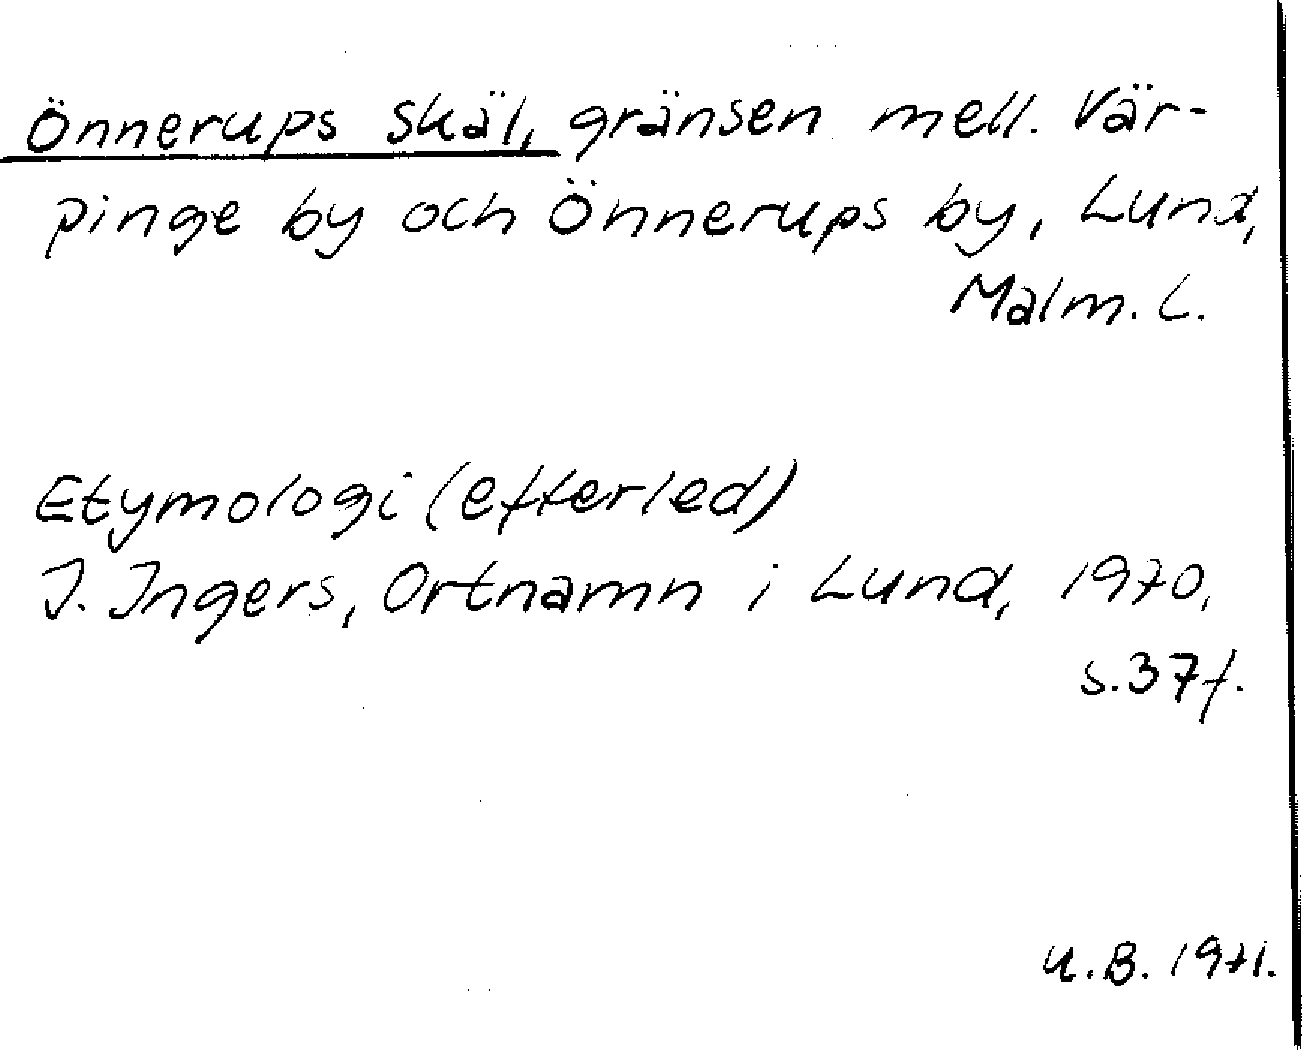 Önnerups skäl, gränsen mell. Vär-
pinge by och Önnerups by, Lund,
Malm. L.
Etymologi (efterled)
I. Ingers, Ortnamn i Lund, 1970,
s. 37 f.
U.B. 1971.